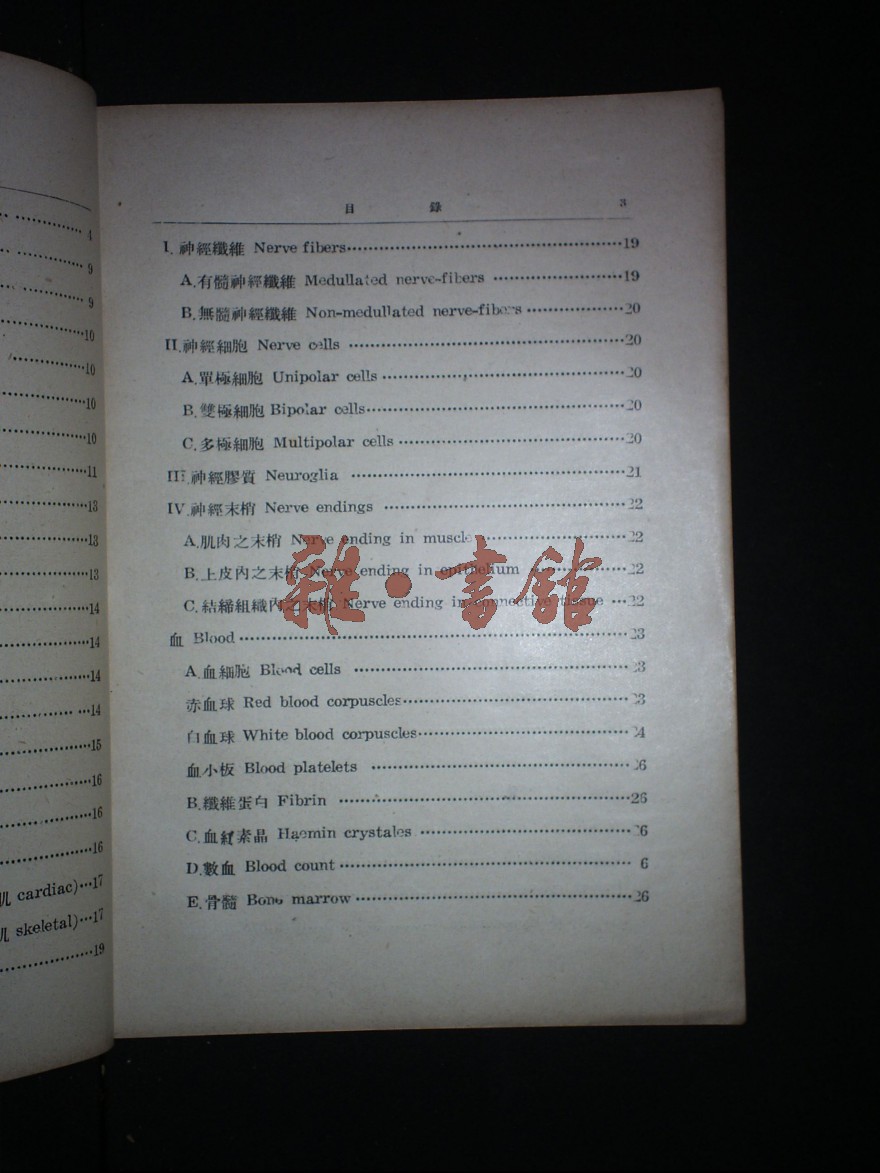 4
9
9
10
10
10
10
11
13
13
13
14
14
14
14
15
16
16
16
肌 cardiac)…17
肌 skeletal)…17
19
目 錄 3
I. 神經纖維 Nerve fibers……19
A.有髓神經纖維 Medullated nerve-fibers ……19
B.無髓神經纖維 Non-medullated nerve-fibers ……20
II.神經細胞 Nerve cells ……20
A.單極細胞 Unipolar cells ……20
B.雙極細胞 Bipolar cells……20
C.多極細胞 Multipolar cells ……20
III.神經膠質 Neuroglia ……21
IV.神經末梢 Nerve endings ……22
A.肌肉之末梢 Nerve ending in muscle ……22
B.上皮內之末梢 Nerve ending in epithelium ……22
C.結締組織內之末梢 Nerve ending in connective tissue …22
血 Blood……23
A.血細胞 Blood cells ……23
赤血球 Red blood corpuscles……23
白血球 White blood corpuscles……24
血小板 Blood platelets ……26
B.纖維蛋白 Fibrin ……26
C.血紅素晶 Haemin crystales ……26
D.數血 Blood count …… 6
E.骨髓 Bone marrow……26
雜·書館